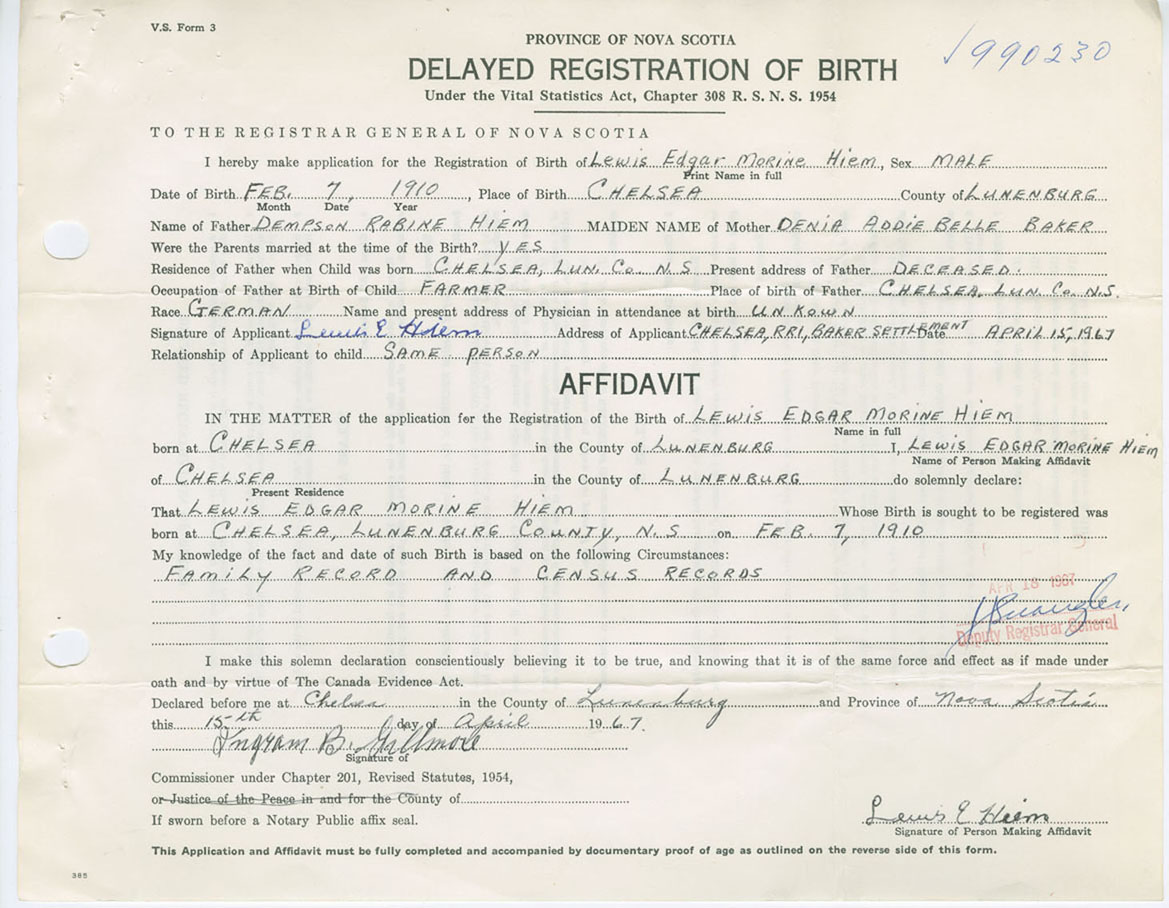 V.S. Form 3
PROVINCE OF NOVA SCOTIA
990230
DELAYED REGISTRATION OF BIRTH
Under the Vital Statistics Act, Chapter 308 R. S. N. S. 1954
TO THE REGISTRAR GENERAL OF NOVA SCOTIA
I hereby make application for the Registration of Birth of Lewis Edgar Morine Hiem, Sex MALE
Print Name in full
Date of Birth FEB. 7, 1910, Place of Birth CHELSEA County of LUNENBURG
Month Date Year
Name of Father DEMPSON RABINE HIEM MAIDEN NAME of Mother DENIA ADDIE BELLE BAKER
Were the Parents married at the time of the Birth? YES
Residence of Father when Child was born CHELSEA, LUN. Co. N.S Present address of Father DECEASED.
Occupation of Father at Birth of Child FARMER Place of birth of Father CHELSEA, LUN. Co. N.S.
Race GERMAN Name and present address of Physician in attendance at birth UNKOWN
Signature of Applicant Lewis E Hiem Address of Applicant CHELSEA, RR1, BAKER SETTLEMENT Date APRIL 15, 1967
Relationship of Applicant to child SAME PERSON
AFFIDAVIT
IN THE MATTER of the application for the Registration of the Birth of LEWIS EDGAR MORINE HIEM
Name in full
born at CHELSEA in the County of LUNENBURG I, LEWIS EDGAR MORINE HIEM
Name of Person Making Affidavit
of CHELSEA in the County of LUNENBURG do solemnly declare:
Present Residence
That LEWIS EDGAR MORINE HIEM Whose Birth is sought to be registered was
born at CHELSEA, LUNENBURG COUNTY, N.S on FEB. 7, 1910
My knowledge of the fact and date of such Birth is based on the following Circumstances:
FAMILY RECORD AND CENSUS RECORDS
APR 18 1967
Deputy Registrar General
I make this solemn declaration conscientiously believing it to be true, and knowing that it is of the same force and effect as if made under
oath and by virtue of The Canada Evidence Act.
Declared before me at Chelsea in the County of Lunenburg and Province of Nova Scotia
this 15-th day of April 1967.
Ingram B. Gillmore
Signature of
Commissioner under Chapter 201, Revised Statutes, 1954,
or Justice of the Peace in and for the County of
If sworn before a Notary Public affix seal.
Lewis E Hiem
Signature of Person Making Affidavit
This Application and Affidavit must be fully completed and accompanied by documentary proof of age as outlined on the reverse side of this form.
385